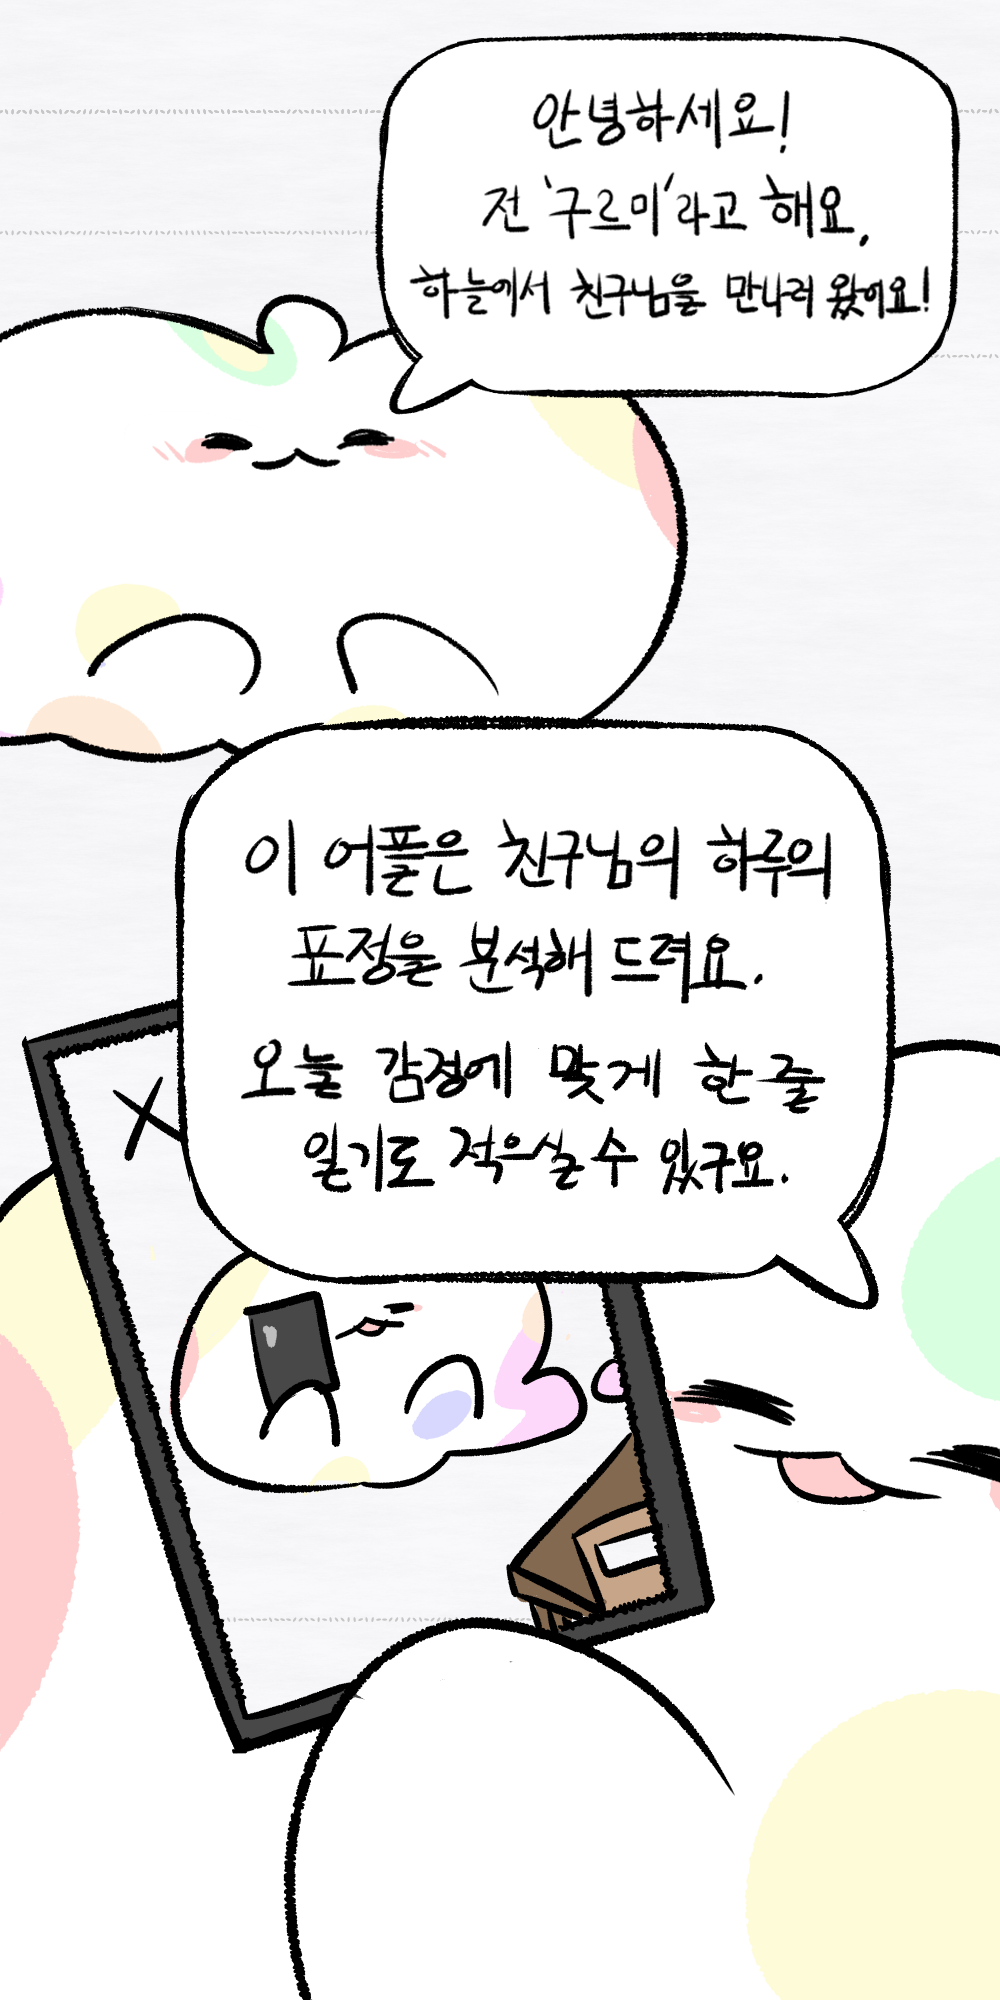 안녕하세요!
전 '구르미'라고 해요,
하늘에서 친구님을 만나러 왔어요!
이 어플은 친구님의 하루의
표정을 분석해 드려요.
오늘 감정에 맞게 한 줄
일기도 적으실 수 있구요.